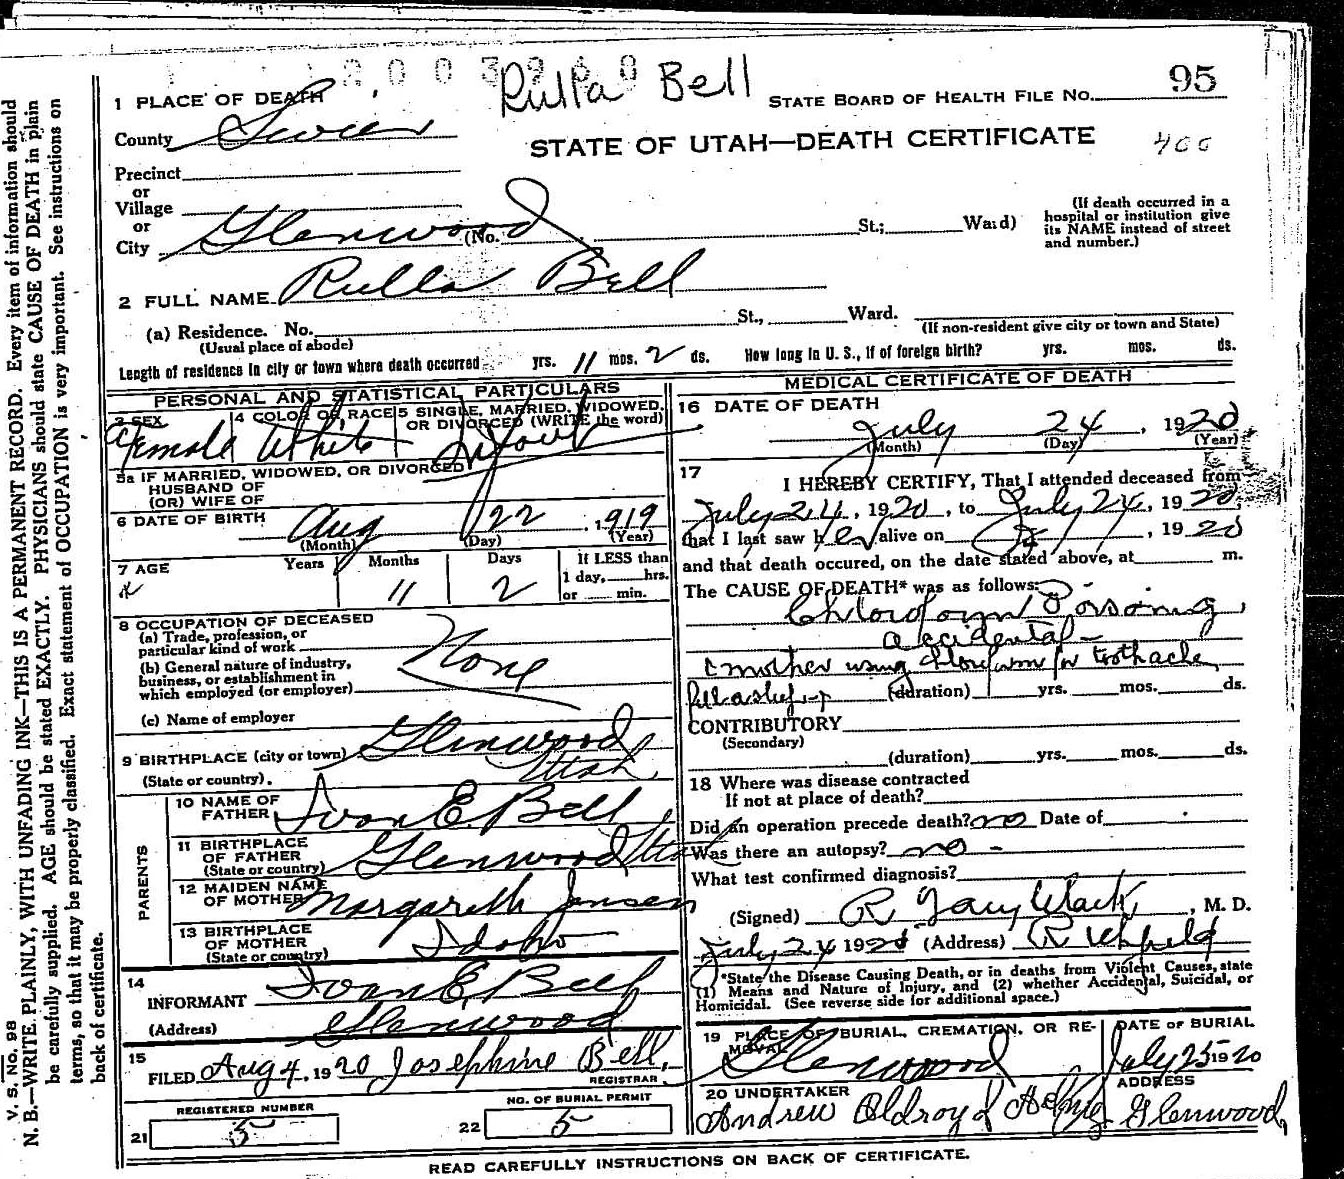 Rulla Bell
95
STATE BOARD OF HEALTH FILE NO.
1 PLACE OF DEATH
County Sevier
STATE OF UTAH—DEATH CERTIFICATE
400
Precinct
or
Village
or
City Glenwood (No. St.; Ward)
(If death occurred in a
hospital or institution give
its NAME instead of street
and number.)
2 FULL NAME Rulla Bell
(a) Residence. No. St., Ward.
(Usual place of abode) (If non-resident give city or town and State)
Length of residence in city or town where death occurred yrs. 11 mos. 2 ds. How long in U. S., if of foreign birth? yrs. mos. ds.
PERSONAL AND STATISTICAL PARTICULARS
3 SEX Female
4 COLOR OR RACE White
5 SINGLE, MARRIED, WIDOWED,
OR DIVORCED (WRITE the word)
5a IF MARRIED, WIDOWED, OR DIVORCED
HUSBAND OF
(OR) WIFE OF
6 DATE OF BIRTH Aug 22, 1919
(Month) (Day) (Year)
7 AGE Years Months Days If LESS than
11 2 1 day, hrs.
or min.
8 OCCUPATION OF DECEASED
(a) Trade, profession, or
particular kind of work None
(b) General nature of industry,
business, or establishment in
which employed (or employer)
(c) Name of employer
9 BIRTHPLACE (city or town) Glenwood
(State or country). Utah
PARENTS
10 NAME OF
FATHER Ivan E. Bell
11 BIRTHPLACE
OF FATHER
(State or country) Glenwood Utah
12 MAIDEN NAME
OF MOTHER Margareth Jensen
13 BIRTHPLACE
OF MOTHER
(State or country) Idaho
14
INFORMANT Ivan E. Bell
(Address) Glenwood
15
FILED Aug 4, 1920 Josephine Bell,
REGISTRAR
REGISTERED NUMBER
21 5
NO. OF BURIAL PERMIT
22 5
MEDICAL CERTIFICATE OF DEATH
16 DATE OF DEATH
July 24, 1920
(Month) (Day) (Year)
17
I HEREBY CERTIFY, That I attended deceased from
July 24, 1920, to July 24, 1920,
that I last saw her alive on , 1920
and that death occured, on the date stated above, at m.
The CAUSE OF DEATH* was as follows:
Chloroform Poisoning,
accidental—
mother using chloroform for toothache
fell asleep (duration) yrs. mos. ds.
CONTRIBUTORY
(Secondary)
(duration) yrs. mos. ds.
18 Where was disease contracted
If not at place of death?
Did an operation precede death? no Date of
Was there an autopsy? no -
What test confirmed diagnosis?
(Signed) R , M. D.
July 24 1920 (Address) Richfield
*State the Disease Causing Death, or in deaths from Violent Causes, state
(1) Means and Nature of Injury, and (2) whether Accidental, Suicidal, or
Homicidal. (See reverse side for additional space.)
19 PLACE OF BURIAL, CREMATION, OR RE-
MOVAL Glenwood
DATE OF BURIAL
July 25 1920
20 UNDERTAKER
Andrew Oldroyd
ADDRESS
Glenwood
READ CAREFULLY INSTRUCTIONS ON BACK OF CERTIFICATE.
V. S. NO. 98
N. B.—WRITE PLAINLY, WITH UNFADING INK—THIS IS A PERMANENT RECORD. Every item of information should
be carefully supplied. AGE should be stated EXACTLY. PHYSICIANS should state CAUSE OF DEATH in plain
terms, so that it may be properly classified. Exact statement of OCCUPATION is very important. See instructions on
back of certificate.